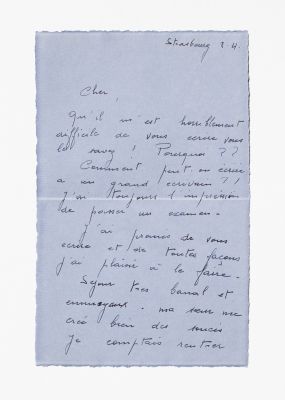 Strasbourg 2.4.
Cher,
qu'il m'est horriblement
difficile de vous écrire vous
le savez ! Pourquoi ??
Comment peut on écrire
a un grand écrivain ?!
J'ai toujours l'impression
de passer un examen -
J'ai promis de vous
ecrire et de toutes façons
j'ai plaisir à le faire -
Sejour tres banal et
ennuyeux - ma sœur me
créé bien des soucis
je comptais rentrer